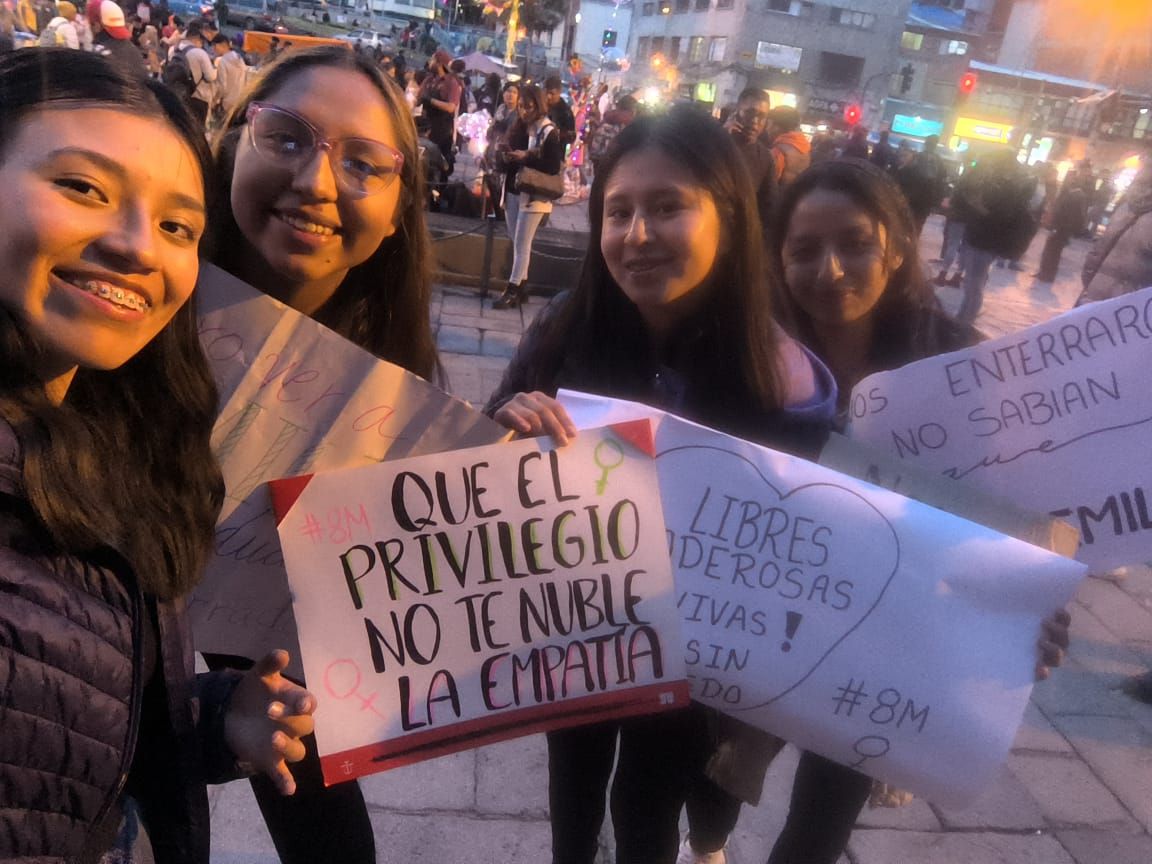 #8M
QUE EL
PRIVILEGIO
NO TE NUBLE
LA EMPATÍA
LIBRES
DEROSAS
VIVAS!
SIN
EDO
#8M
OS ENTERRARO
NO SABIAN
que
EMIL
ro ver a